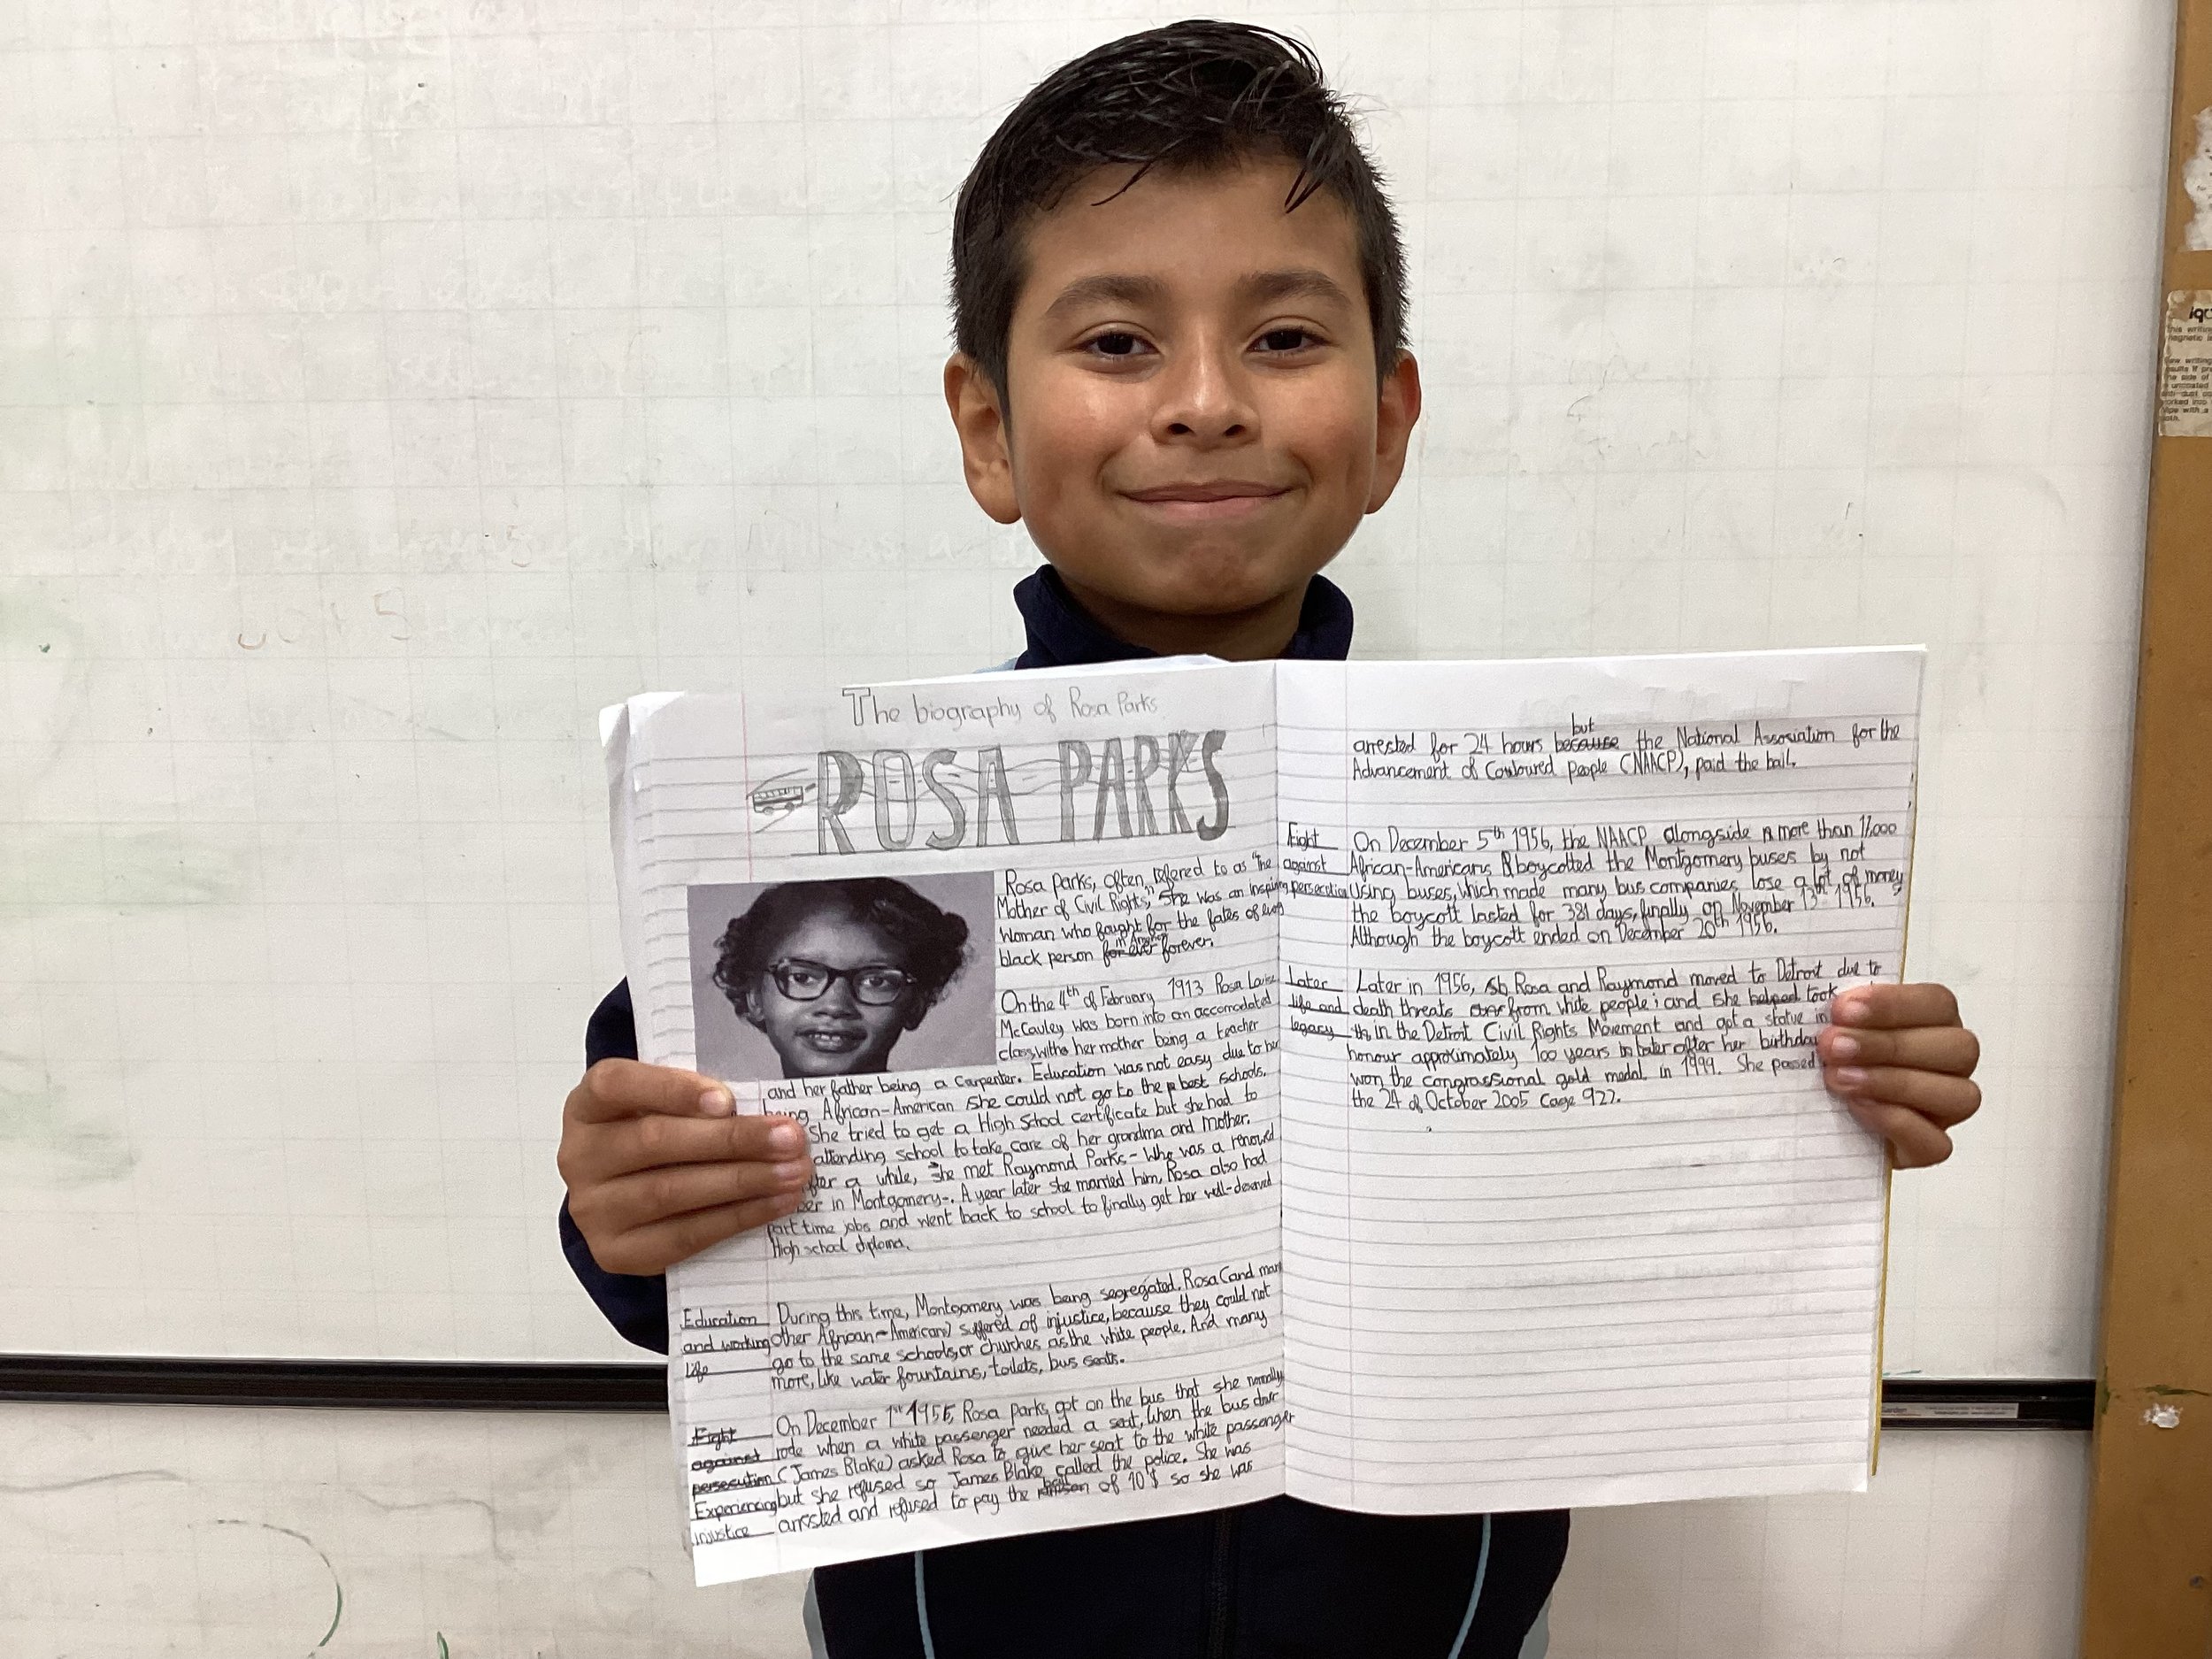 The biography of Rosa Parks
ROSA PARKS
Rosa Parks, often refered to as "The
Mother of Civil Rights", She was an inspiring
woman who fought for the fates of every
black person in America forever.
On the 4th of February 1913 Rosa Louise
McCauley was born into an accomodated
class, with her mother being a teacher
and her father being a carpenter. Education was not easy due to her
being African-American she could not go to the best schools.
She tried to get a High School certificate but she had to
attending school to take care of her grandma and mother.
After a while, she met Raymond Parks- Who was a renowed
in Montgomery-. A year later she married him, Rosa also had
part time jobs and went back to school to finally get her well-deserved
High school diploma.
Education
and working
life
During this time, Montgomery was being segregated. Rosa (and many
other African-American) suffered of injustice, because they could not
go to the same schools, or churches as the white people. And many
more, like water fountains, toilets, bus seats.
Fight
against
persecution
Experiencing
injustice
On December 1st 1955, Rosa Parks got on the bus that she normally
rode when a white passenger needed a seat, when the bus driver
(James Blake) asked Rosa to give her seat to the white passenger
but she refused so James Blake called the police. She was
arrested and refused to pay the bail of 10$ so she was
but
arrested for 24 hours because the National Association for the
Advancement of Cowloured People (NAACP), paid the bail.
Fight
against
persecution
On December 5th 1956, the NAACP alongside more than 17,000
African-Americans boycotted the Montgomery buses by not
using buses, which made many bus companies lose a lot of money,
the boycott lasted for 381 days, finally on November 13th 1956.
Although the boycott ended on December 20th 1956.
Later
life and
legacy
Later in 1956, Rosa and Raymond moved to Detroit due to
death threats from white people; and she helped took
in the Detroit Civil Rights Movement and got a statue in
honour approximately 100 years later after her birthday
won the congrassional gold medal in 1999. She passed
the 24 of October 2005 (age 92).